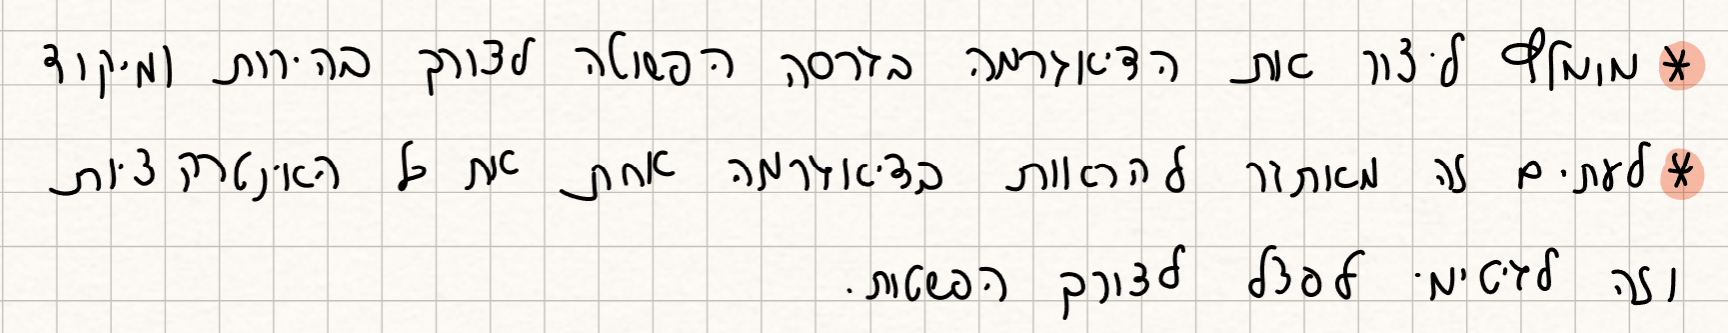 * מומלץ ליצור את הדיאגרמה בגרסה הפשוטה לצורך בהירות ומיקוד
* לעתים זה מאתגר להראות בדיאגרמה אחת את כל האינטרקציות
וזה לגיטימי לפצל לצורך הפשטות.